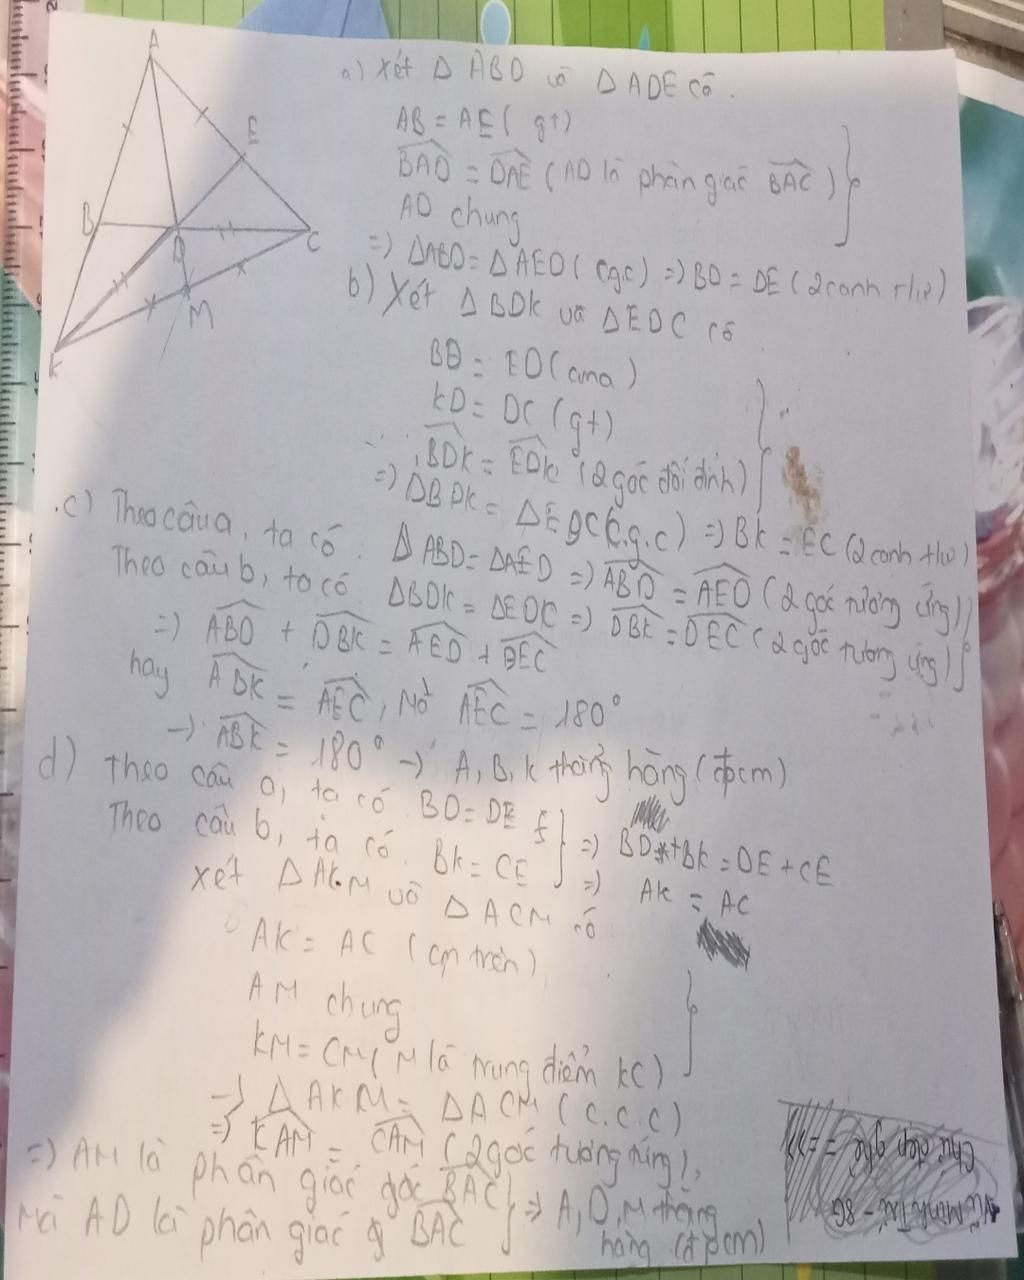 A
E
B
D
C
M
K
a) Xét Δ ABD và Δ ADE có.
AB = AE ( gt)
BAD = DAE ( AD là phân giác BAC )
AD chung
=) ΔABD = Δ AED ( cgc) =) BD = DE ( 2 canh
b) Xét Δ BDK và Δ EDC có
BD = ED ( cma )
KD = DC ( gt)
BDK = EDK ( 2 góc đối đỉnh)
=) ΔBDK = ΔEDC (c.g.c) =) BK = EC (2 canh
.c) Theo câu a, ta có : Δ ABD = ΔAED =) ABD = AED ( 2 góc tương ứng)
Theo câu b, ta có ΔBDK = ΔEDC =) DBK = DEC ( 2 góc tương ứng)
=) ABD + DBK = AED + DEC
hay ABK = AEC, Mà AEC = 180°
-) ABK = 180° -) A, B, K thẳng hàng ( đpcm)
d) Theo câu a, ta có BD = DE
Theo câu b, ta có BK = CE =) BD + BK = DE + CE
=) AK = AC
xét Δ AKM và Δ ACM có
AK = AC ( cm trên)
AM chung
KM = CM ( M là trung điểm KC)
-) Δ AKM = Δ ACM ( c.c.c)
=) KAM = CAM ( 2 góc tương ứng),
=) AM là phân giác góc BAC
Mà AD là phân giác BAC =) A, D, M thẳng
hàng (đpcm)